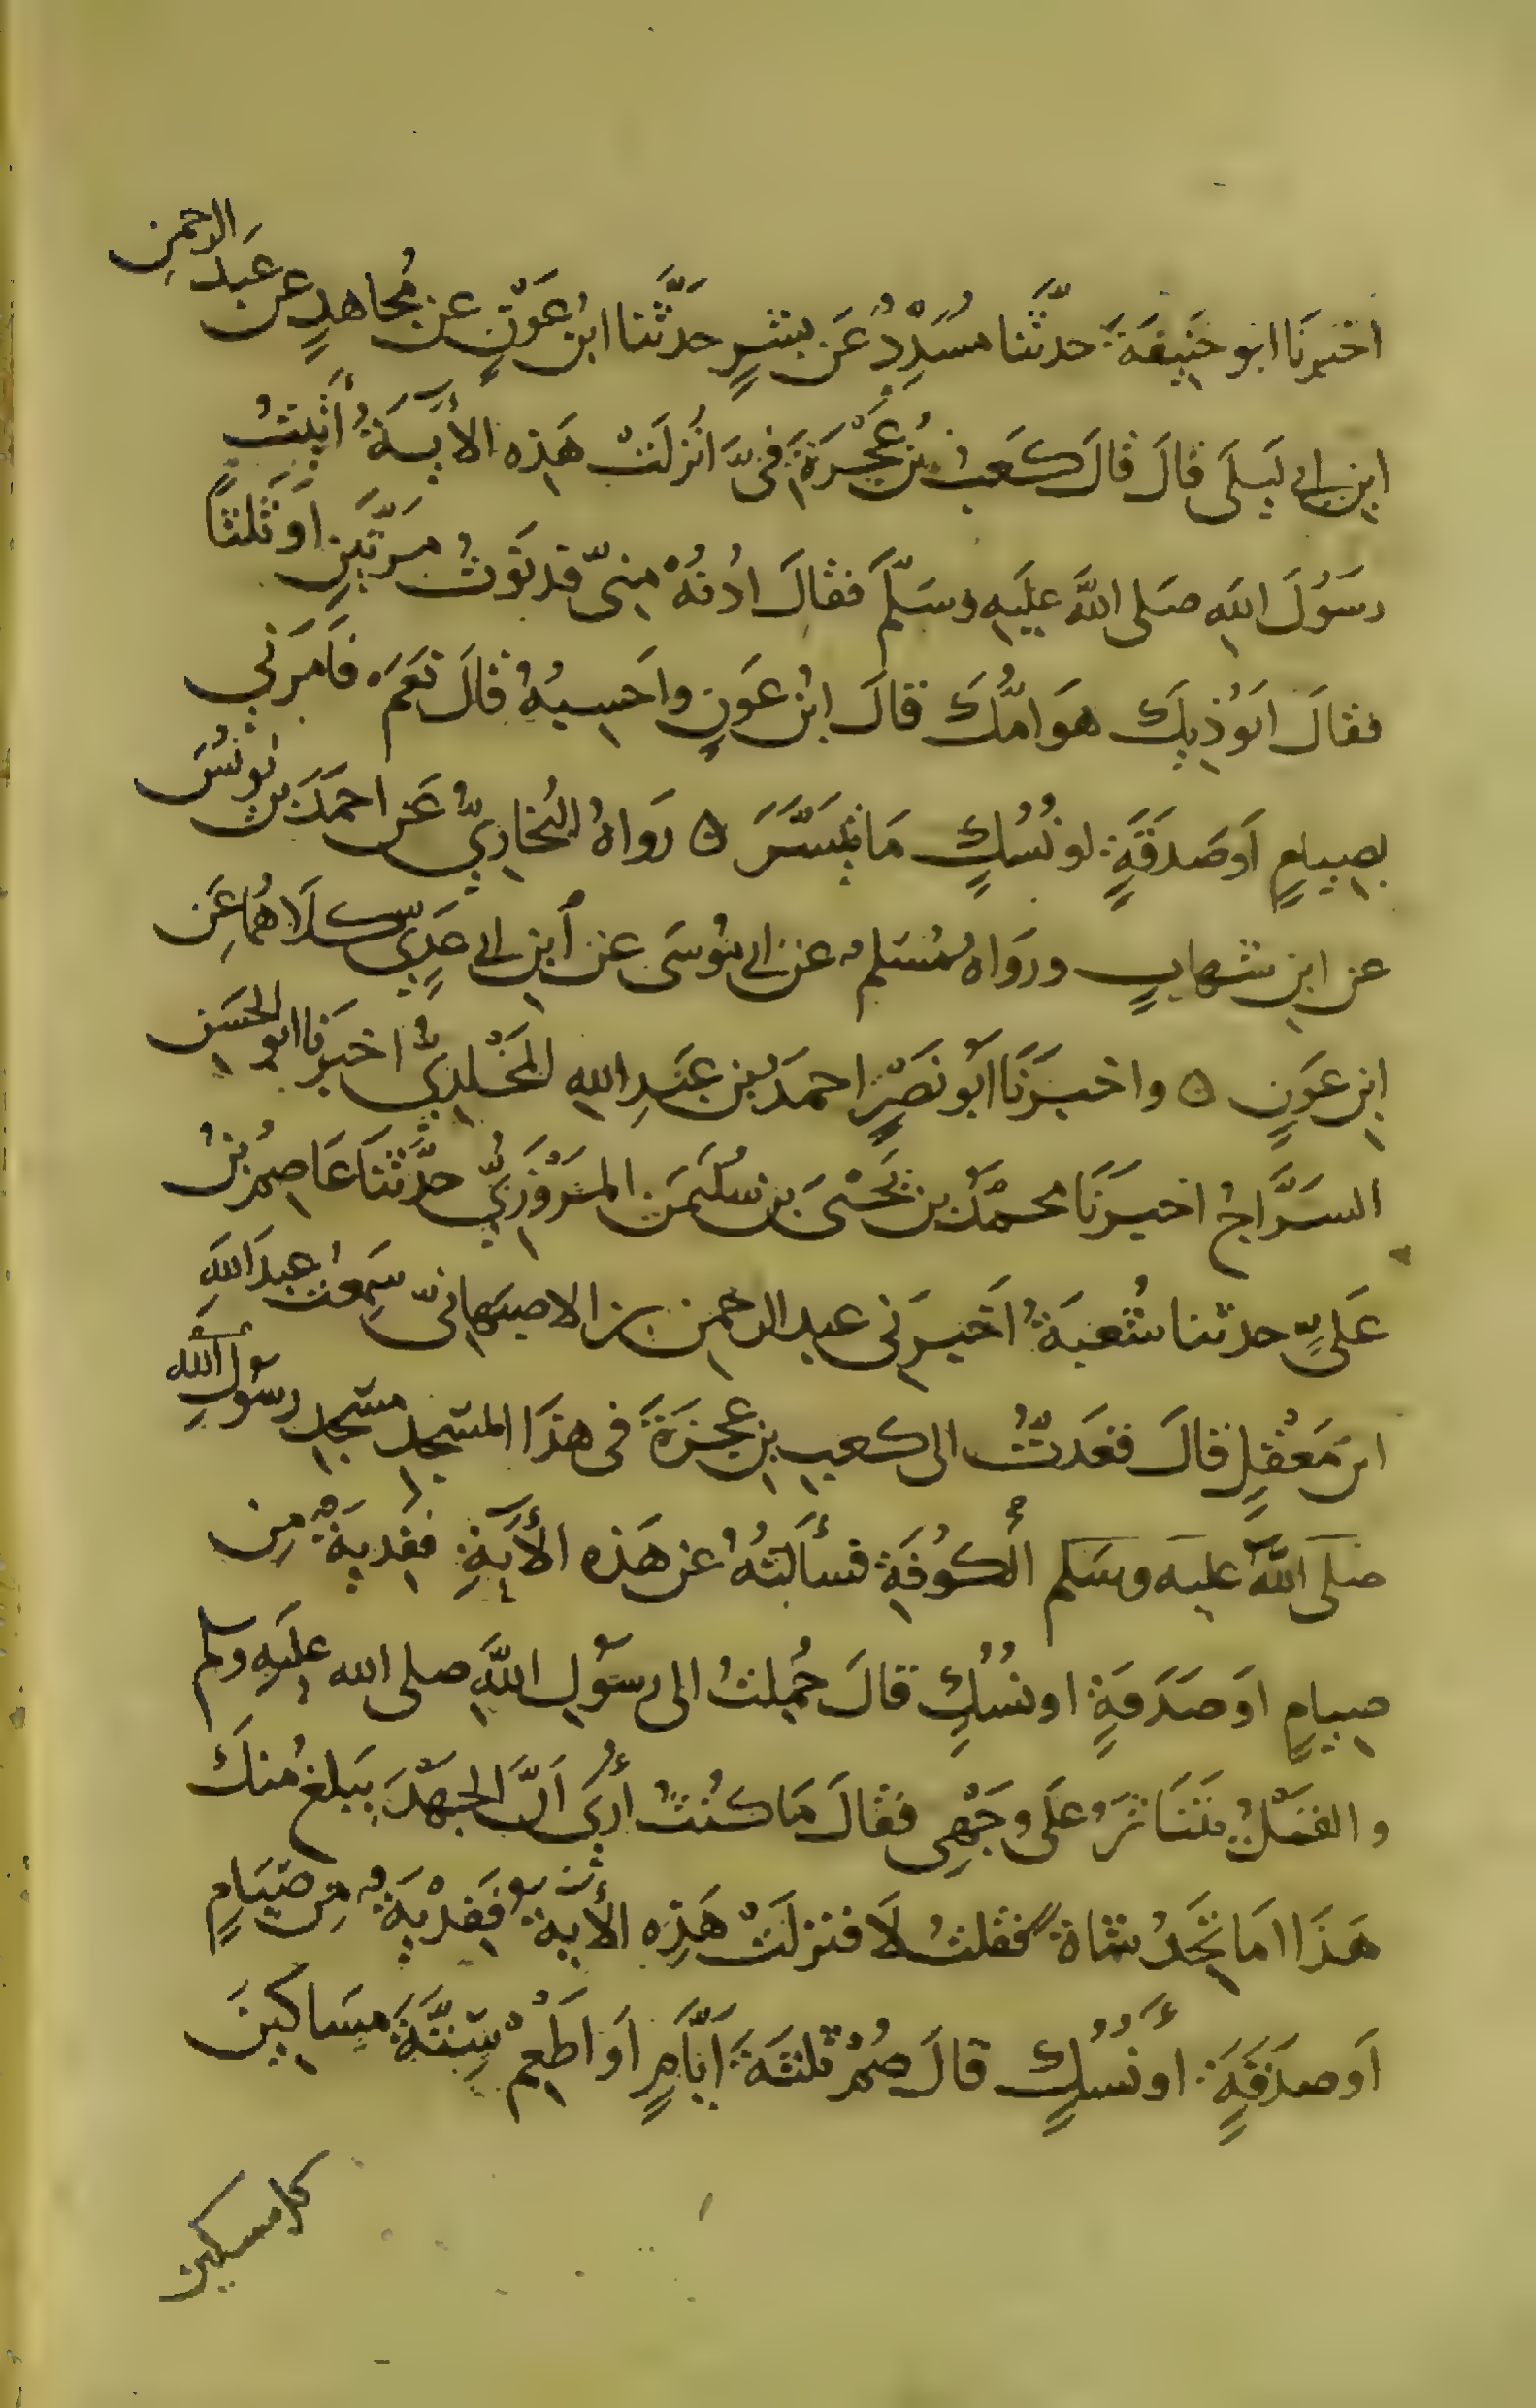 اخبرَنَا ابو حَنِيفَةَ حدثَّنا مسَُدِّدُ عَن بشرٍ حدَّثَنا ابن عَوَنٍ عن مُجاهدٍ عن عَبد الرحمن
ابنِ ابى لَيلَى قالَ قالَ كَعبُ بنُ عُجْرَةَ فىَّ انُزلَتْ هَذِه الأَيَةُ أَتَيتُ
رسَوُلَ اللهِ صَلى اللهَّ علَيهِ وسَلّمَ فقالَ ادُنُهْ مِنىّ فدنَوتُ مرَّتَينِ اَو ثَلثًا
فقالَ ايَوُذِيكَ هوَامُّكَ قالَ ابُن عَونٍ واَحسِبُهُ قالَ نعَمَ فاَمَرَنى
بصِيامٍ اَوصَدَقَةٍ اَو نُسُكٍ مَا تَيَسَّرَ ه رَواهُ البُخاريُّ عَن احمَدَ بن يُونُسَ
عن ابنِ شهابٍ ورَواه مُسَلم عن ابى مُوسَى عن ابنِ ابى عَدِيٍّ كلَاهُما عَن
ابنِ عَونٍ ه واخبَرَنَا اَبو نَصْرٍ احمدَ بن عَبَدِ اللهِ المَخْلدِيُّ اخبَرَنا ابو الحسَن
السَرَّاجُ اخبرَنَا محمَّدُ بن يَحْيىَ بن سُلَيمَن المَرْوَزِيُّ حدَّثنَا عَاصِمُ بنُ
عَلىٍّ حدثنا شُعبَةُ اَخبرَنى عبد الرحمن بن الاصبَهانىّ سَمِعتُ عبدَ اللهَ
ابنَ مَعْقِلٍ قالَ قعَدتُّ الى كعبِ بنِ عُجرَةَ فى هذَا المسَجِد مسَجدِ رسَوُلِ الله
صَلى اللهَّ عليه وسَلم الكوُفَةِ فسأَلتُهُ عن هَذه الأَيَةِ فَفِديَةٌ مِن
صِيامٍ اوَ صَدَقةٍ او نُسُكٍ قالَ حُمِلتُ الى رسَوُلِ اللهَِّ صلى الله عليَهِ وسلم
والقَمْلُ يتَنَاثَرُ عَلَى وجَهِْى فقالَ مَا كنُتُ أُرَى اَنَّ الجَهدَ يَبلغ مُنكَ
هَذَا امَا تَجَدُ شاةً فقلتُ لَا فنزلَتْ هَذِه الأَية فَفِدْيَةٌ مِن صِيَامٍ
اَو صدَقَةٍ اَو نُسُكٍ قالَ صُمْ ثلثةَ اَيَّامٍ اَو اَطعِمْ سِتَّةَ مسَاكِينَ
كل مسكين